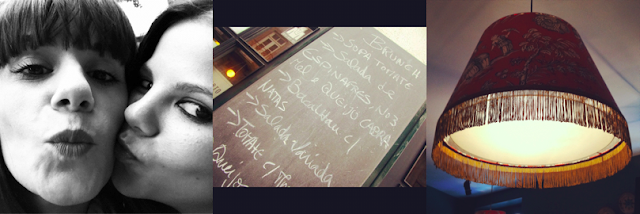 BRUNCH
> SOPA TOMATE
> Salada de
ESPINAFRES, NOZ
& QUEIJO CABRA
> Bacalhau c/
NATAS
> Salada Variada
> TOMATE c/
Queijo